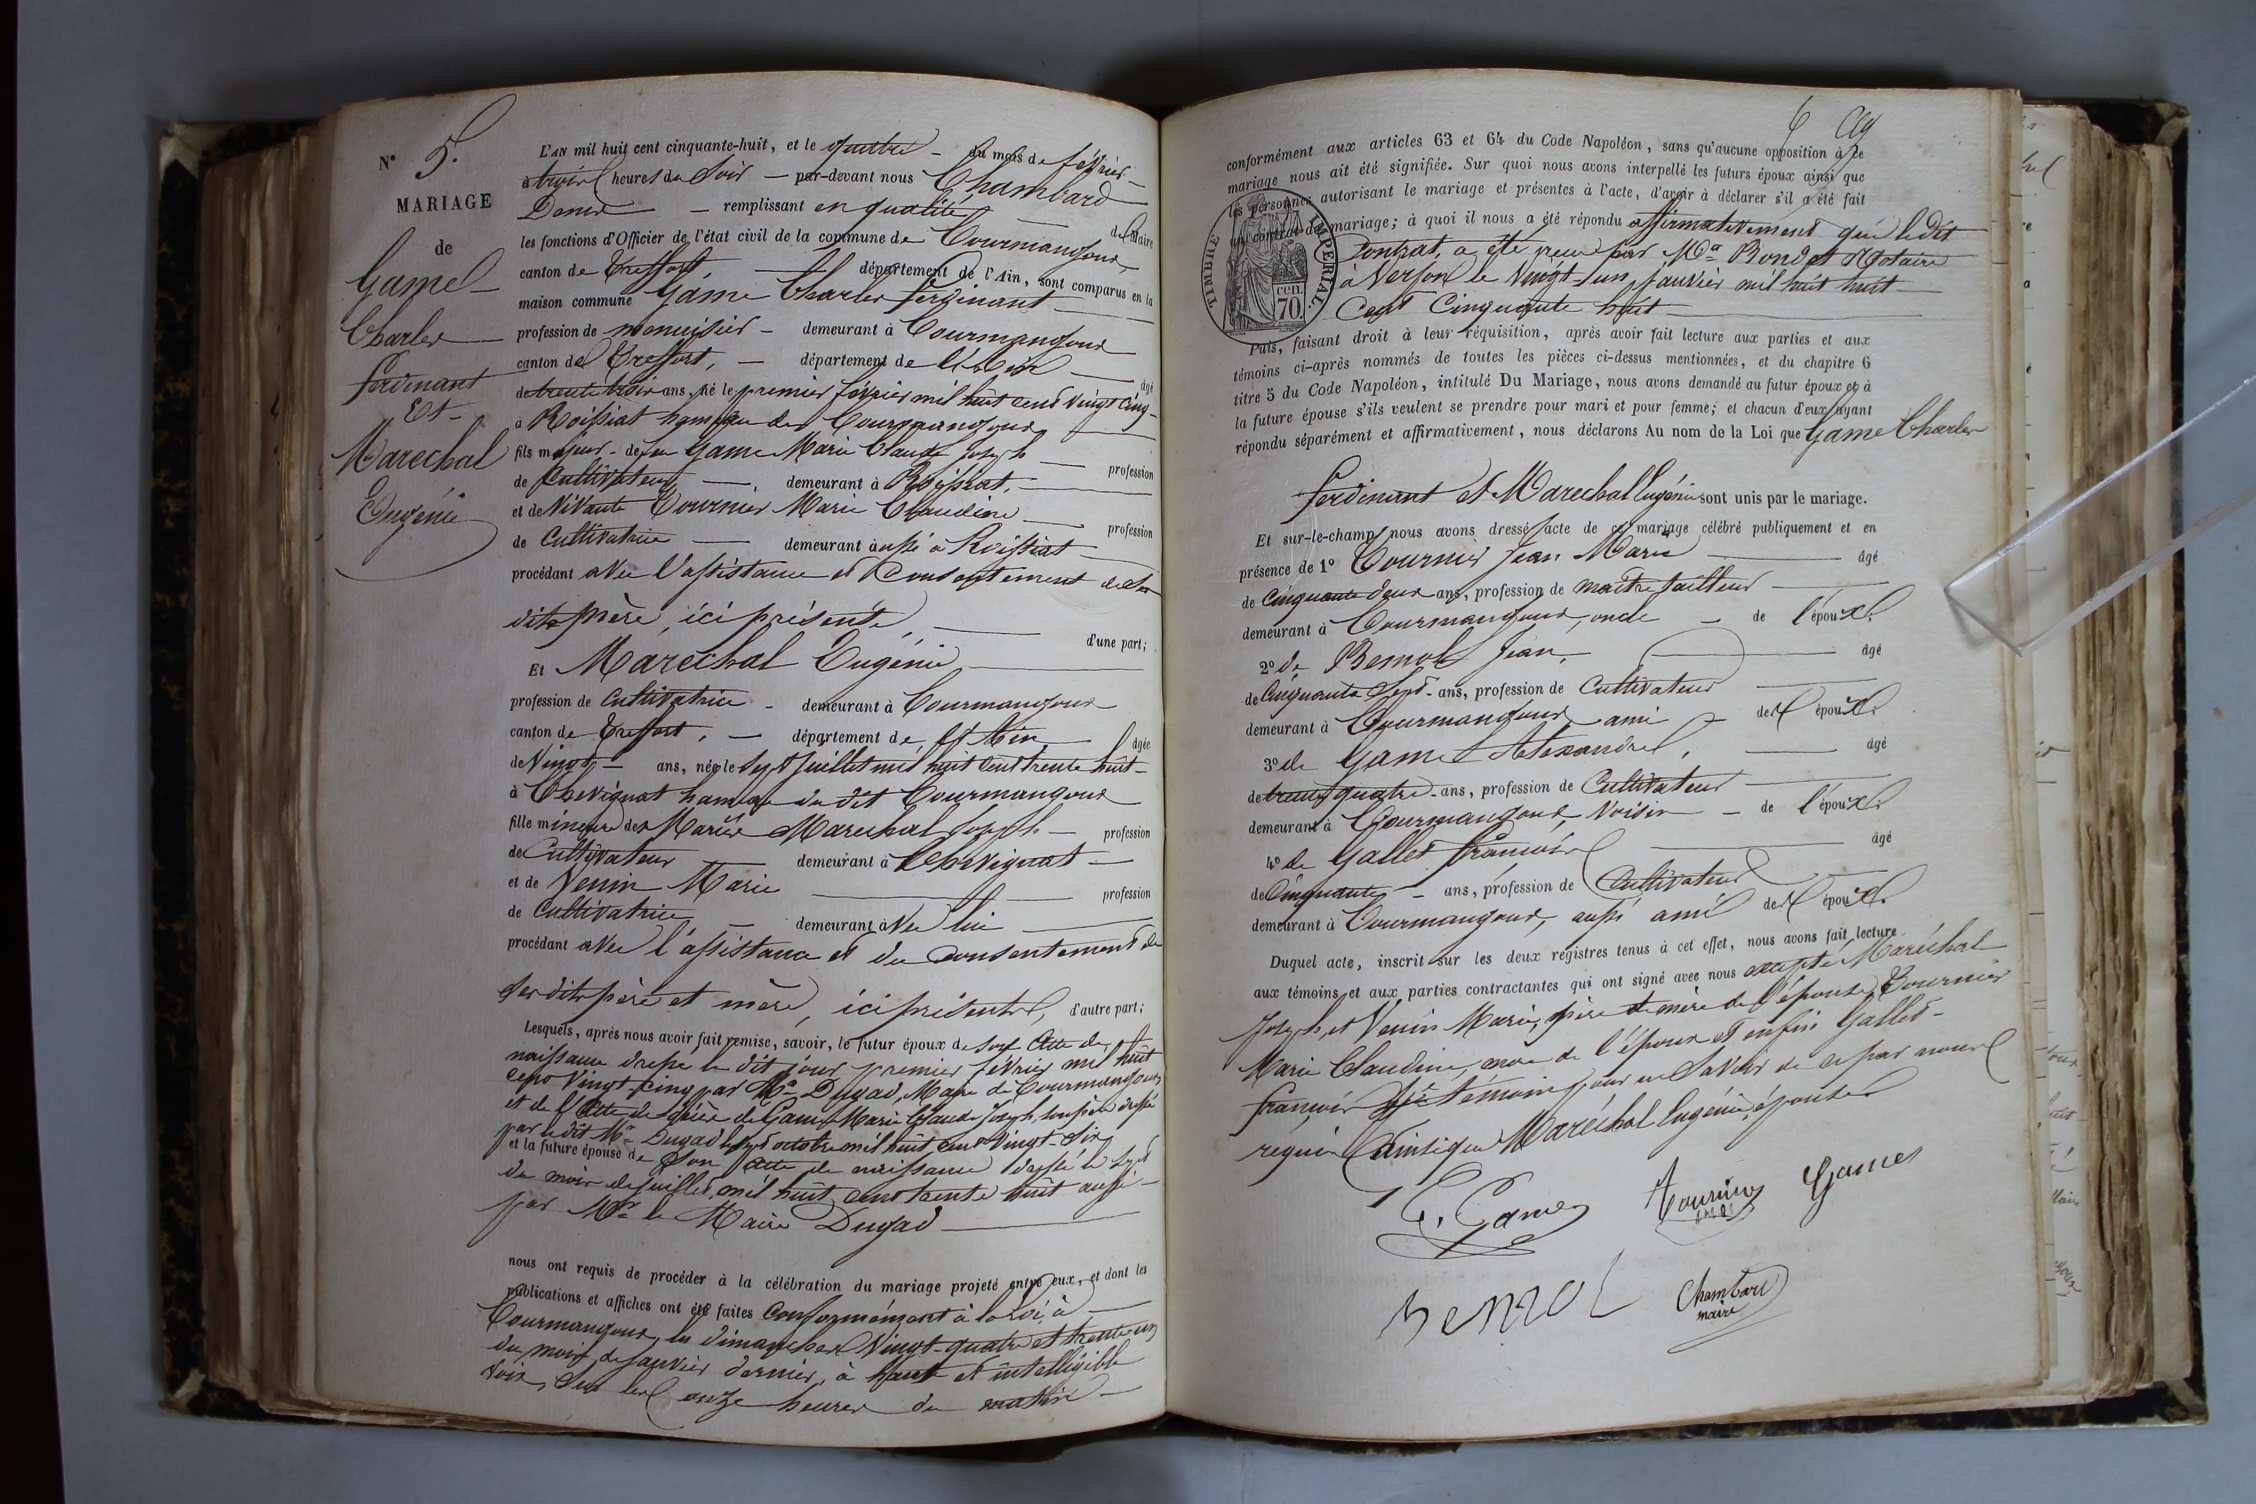 N° 5.
MARIAGE
de
Game
Charles
Ferdinant
Et
Marechal
Eugénie
L'AN mil huit cent cinquante-huit, et le quatre du mois de février
à trois heures du Soir par-devant nous Chambard
Denis remplissant en qualité de Maire
les fonctions d'Officier de l'état civil de la commune de Courmangoux,
canton de Treffort, département de l'Ain, sont comparus en la
maison commune Game Charles Ferdinant
profession de menuisier demeurant à Courmangoux
canton de Treffort, département de l'Ain âgé
de trente trois ans, né le premier février mil huit cent vingt cinq
à Roissiat hameau de Courmangoux
fils majeur de feu Game Marie Claude Joseph profession
de Cultivateur demeurant à Roissiat,
et de vivante Tournier Marie Claudine profession
de Cultivatrice demeurant aussi à Roissiat
procédant avec l'assistance et Consentement de sa
dite mère, ici présente d'une part;
Et Marechal Eugénie
profession de Cultivatrice demeurant à Courmangoux
canton de Treffort, département de l'Ain âgée
de Vingt ans, née le sept Juillet mil huit cent trente huit
à Chevignat hameau du dit Courmangoux
fille mineure des Mariés Marechal Joseph profession
de Cultivateur demeurant à Chevignat
et de Venin Marie profession
de Cultivatrice demeurant avec lui
procédant avec l'assistance et du consentement de
ses dits père et mère, ici présents, d'autre part;
Lesquels, après nous avoir fait remise, savoir, le futur époux de son Acte de
naissance dressé le dit jour premier février mil huit
cent vingt-cinq par Mr Dugad, Maire de Courmangoux
et de l'Acte de décès de Game Marie Claude Joseph, son père dressé
par le dit Mr Dugad le sept octobre mil huit cent vingt-six
et la future épouse de Son Acte de naissance dressé le sept
du mois de juillet, mil huit cent trente huit aussi
par Mr le Maire Dugad
nous ont requis de procéder à la célébration du mariage projeté entre eux, et dont les
publications et affiches ont été faites Conformément à la loi, à
Courmangoux, les dimanches Vingt-quatre et trente un
du mois de Janvier dernier, à haute et intelligible
Voix, Sur les onze heures du matin
6
conformément aux articles 63 et 64 du Code Napoléon, sans qu'aucune opposition à ce
mariage nous ait été signifiée. Sur quoi nous avons interpellé les futurs époux ainsi que
les personnes autorisant le mariage et présentes à l'acte, d'avoir à déclarer s'il a été fait
un contrat de mariage; à quoi il nous a été répondu affirmativement que le dit
Contrat, a été reçu par Me Rondet Notaire
à Verjon le Vingt-un Janvier mil huit
Cent Cinquante huit
TIMBRE IMPÉRIAL.
70 cen.
Puis, faisant droit à leur réquisition, après avoir fait lecture aux parties et aux
témoins ci-après nommés de toutes les pièces ci-dessus mentionnées, et du chapitre 6
titre 5 du Code Napoléon, intitulé Du Mariage, nous avons demandé au futur époux et à
la future épouse s'ils veulent se prendre pour mari et pour femme; et chacun d'eux ayant
répondu séparément et affirmativement, nous déclarons Au nom de la Loi que Game Charles
Ferdinant et Marechal Eugénie sont unis par le mariage.
Et sur-le-champ nous avons dressé acte de ce mariage célébré publiquement et en
présence de 1° Tournier Jean Marie âgé
de Cinquante deux ans, profession de maître tailleur
demeurant à Courmangoux, oncle de l'époux.
2° de Bemol Jean, âgé
de Cinquante Sept ans, profession de Cultivateur
demeurant à Courmangoux ami des époux.
3° de Game Alexandre, âgé
de trente quatre ans, profession de Cultivateur
demeurant à Courmangoux, Voisin de l'époux.
4° de Gallet françois âgé
de Cinquante ans, profession de Cultivateur
demeurant à Courmangoux, aussi ami des époux.
Duquel acte, inscrit sur les deux registres tenus à cet effet, nous avons fait lecture
aux témoins et aux parties contractantes qui ont signé avec nous excepté Maréchal
Joseph, et Venin Marie, père et mère de l'épouse, Tournier
Marie Claudine, mère de l'époux et enfin Gallet
françois témoin pour ne Savoir de ce par nous
requis Ainsi que Maréchal Eugénie, épouse
C. Game Tournier Game
Bemol Chambard
maire